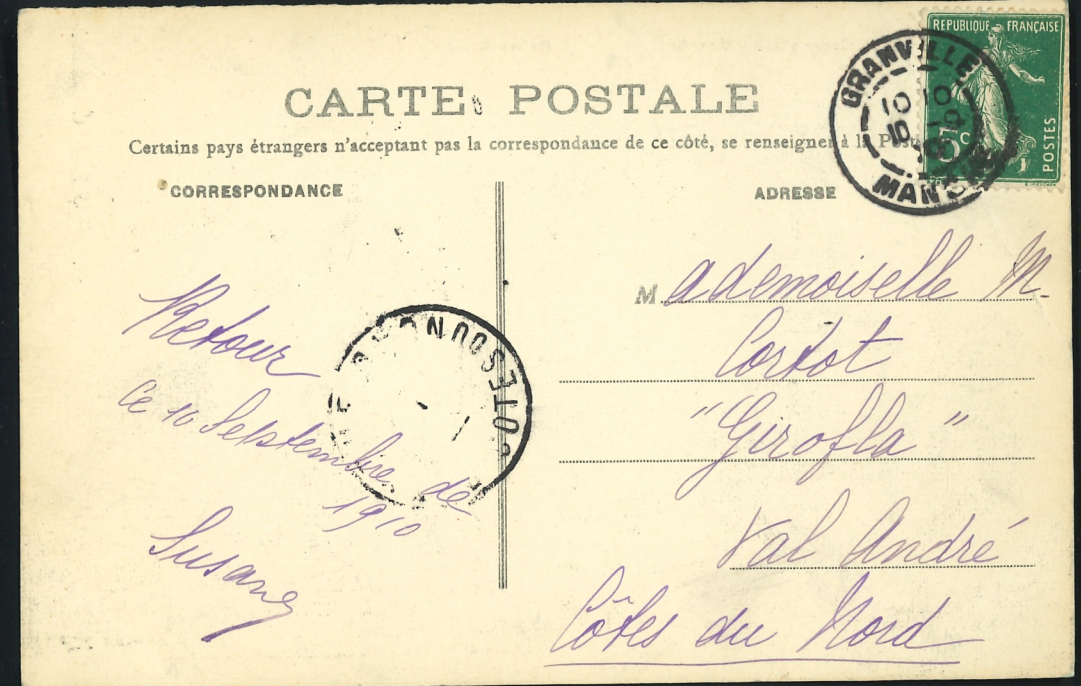 REPUBLIQUE FRANÇAISE
POSTES
GRANVILLE
MANCHE
CARTE POSTALE
Certains pays étrangers n'acceptant pas la correspondance de ce côté, se renseigner à la Poste
CORRESPONDANCE
ADRESSE
Retour
Ce 10 Septembre de
1910
Susang
Mademoiselle M.
Cortot
"Girofla"
Val André
Côtes du Nord